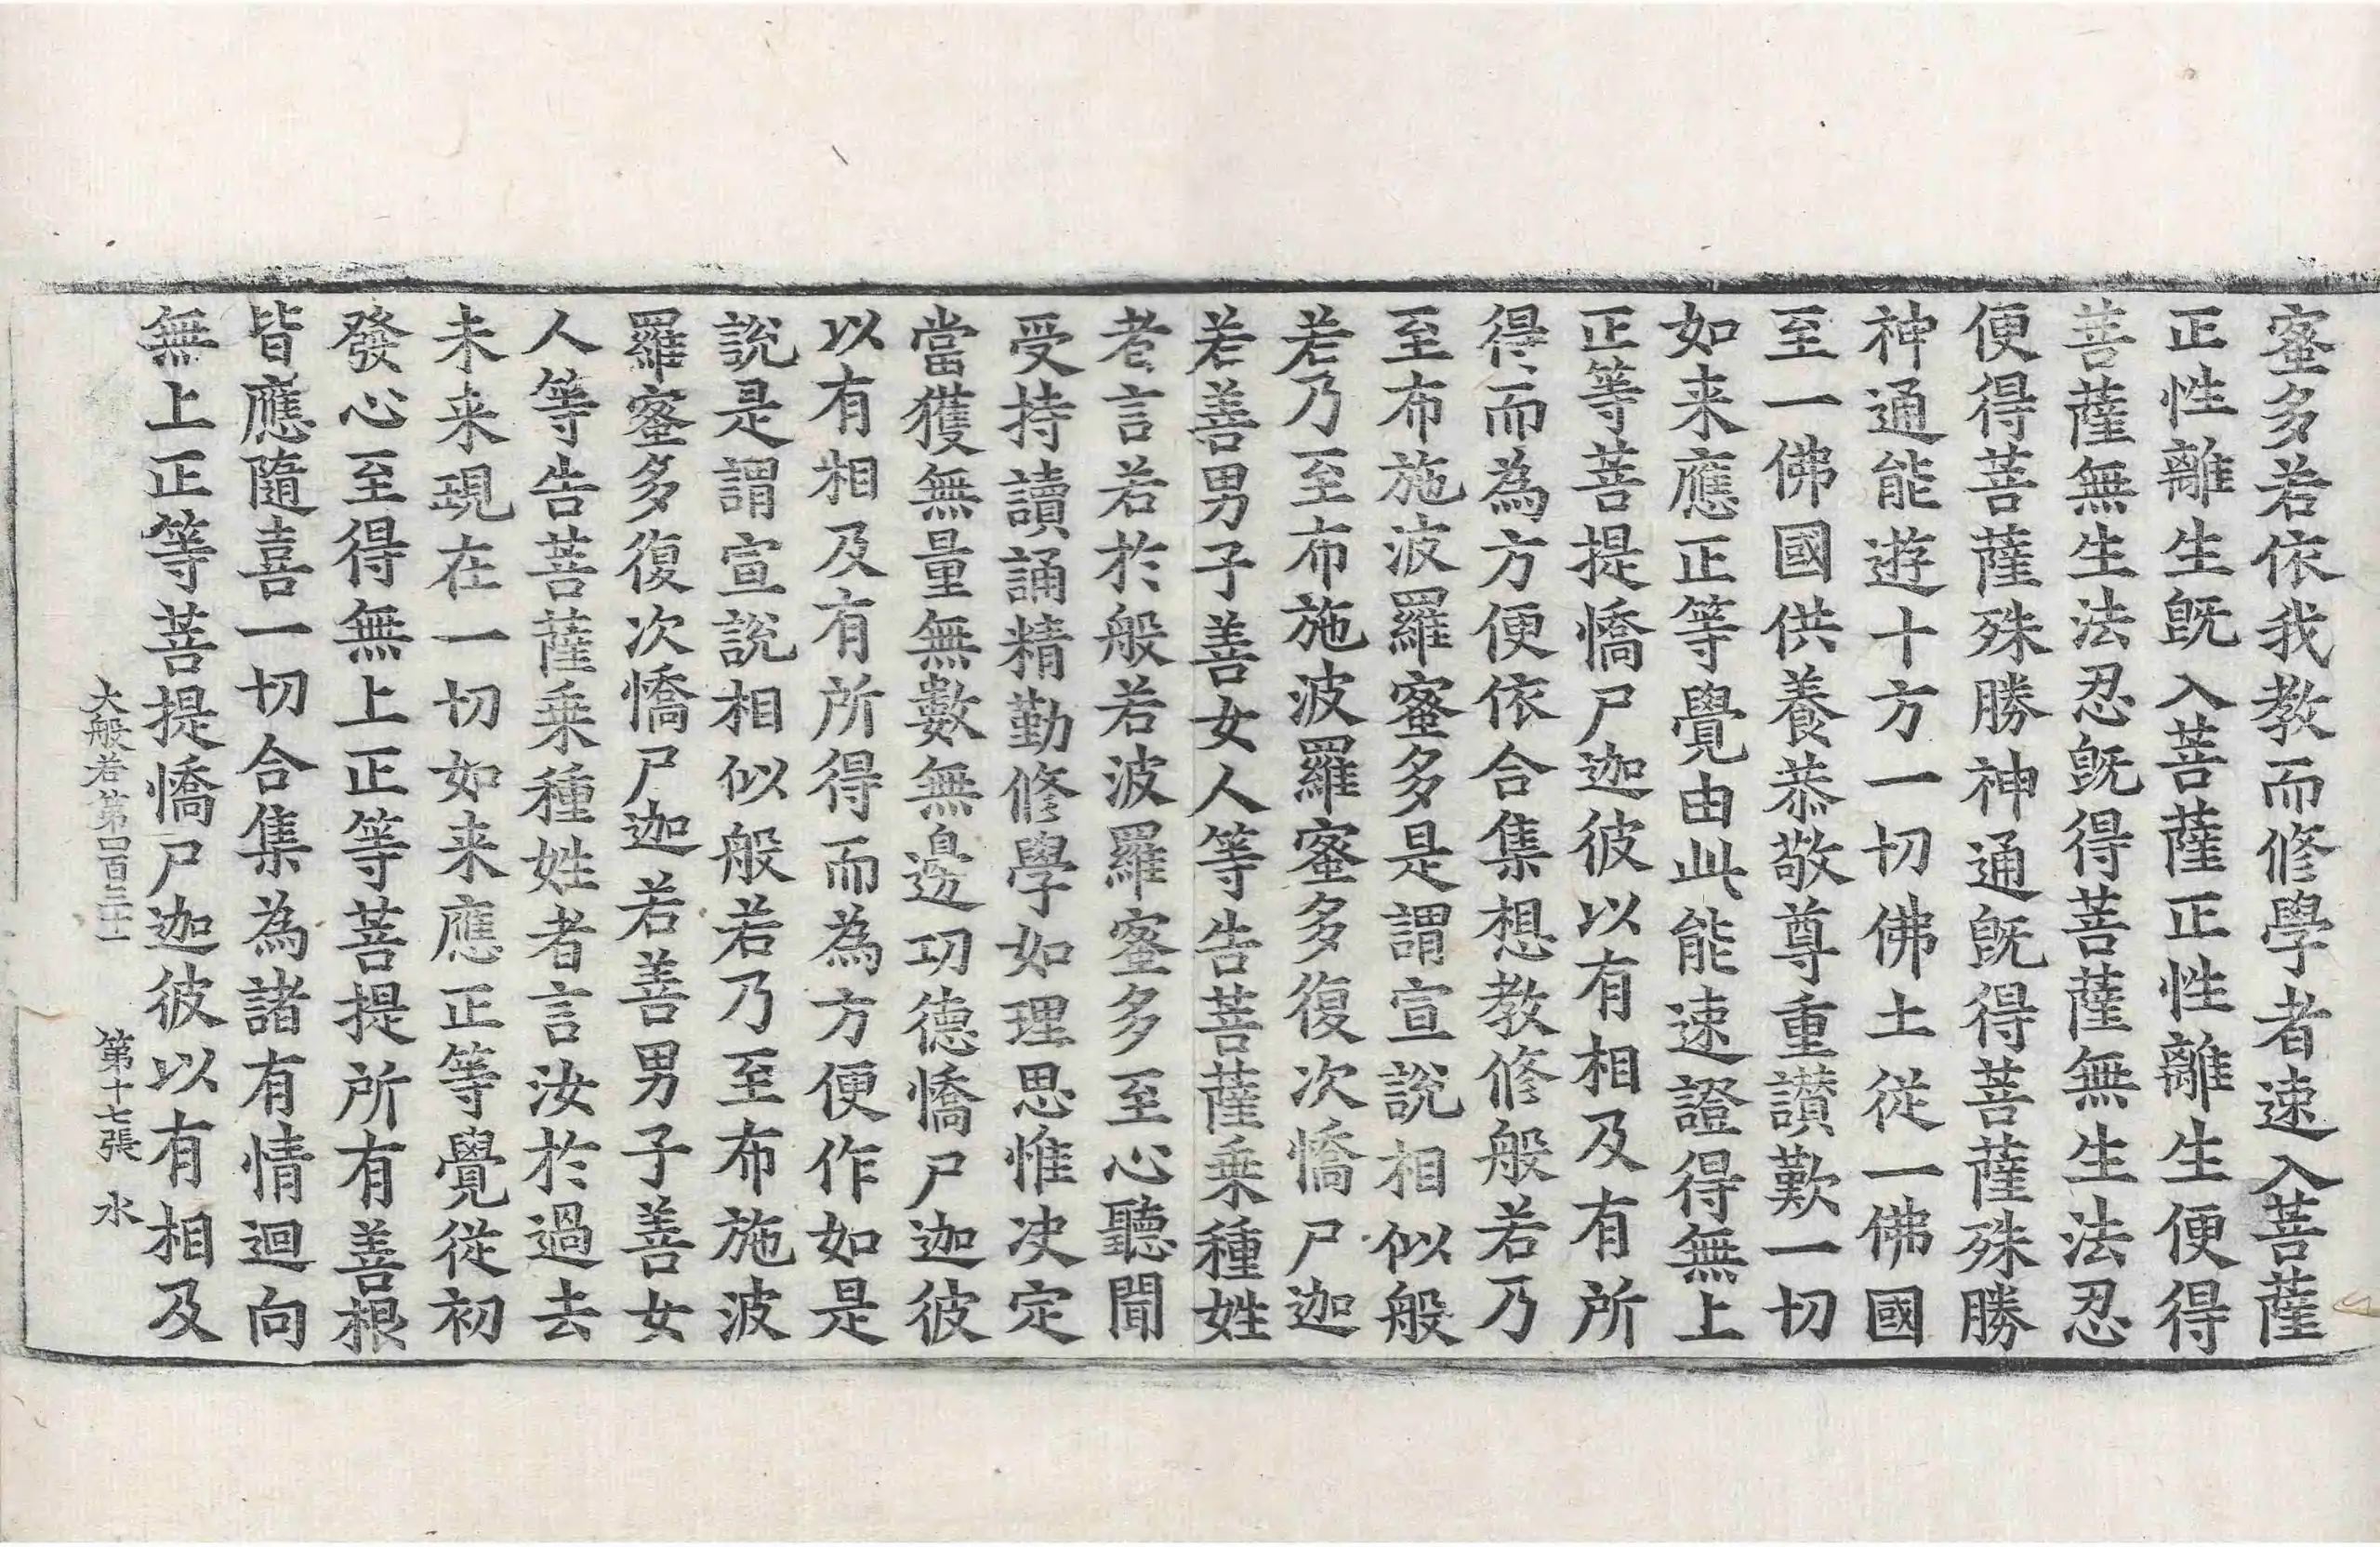 蜜多若依我教而修學者速入菩薩
正性離生旣入菩薩正性離生便得
菩薩無生法忍旣得菩薩無生法忍
便得菩薩殊勝神通旣得菩薩殊勝
神通能遊十方一切佛土從一佛國
至一佛國供養恭敬尊重讃歎一切
如来應正等覺由此能速證得無上
正等菩提憍尸迦彼以有相及有所
得而為方便依合集想教修般若乃
至布施波羅蜜多是謂宣說相似般
若乃至布施波羅蜜多復次憍尸迦
若善男子善女人等告菩薩乗種姓
者言若於般若波羅蜜多至心聽聞
受持讀誦精勤修學如理思惟决定
當獲無量無數無邊功德憍尸迦彼
以有相及有所得而為方便作如是
說是謂宣說相似般若乃至布施波
羅蜜多復次憍尸迦若善男子善女
人等告菩薩乗種姓者言汝於過去
未来現在一切如来應正等覺從初
發心至得無上正等菩提所有善根
皆應隨喜一切合集為諸有情迴向
無上正等菩提憍尸迦彼以有相及
大般若第四百三十一 第十七張 水